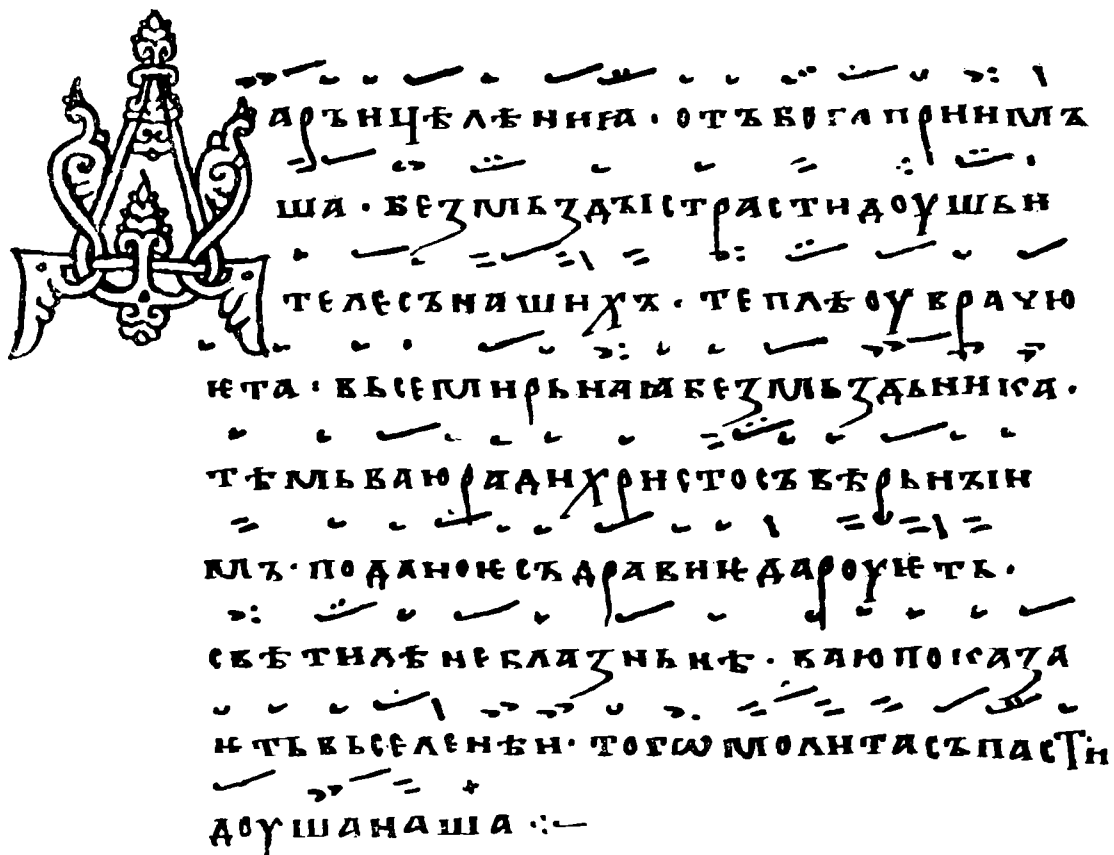 Даръ ицѣлѣниꙗ · отъ бога приимъ
ша · безмьздъı страсти доушьн
телесъ нашихъ · теплѣ оуврачю
ѥта · вьсемирьнаꙗ безмьздьника ·
тѣмь ваю ради христосъ вѣрьнъıи
мъ · поданоѥ съдравиѥ дароуѥть ·
свѣтилѣ неблазньнѣ · ваю показа
ѥть въселенѣи · тогѡ молита съпасти
доуша наша ·:—